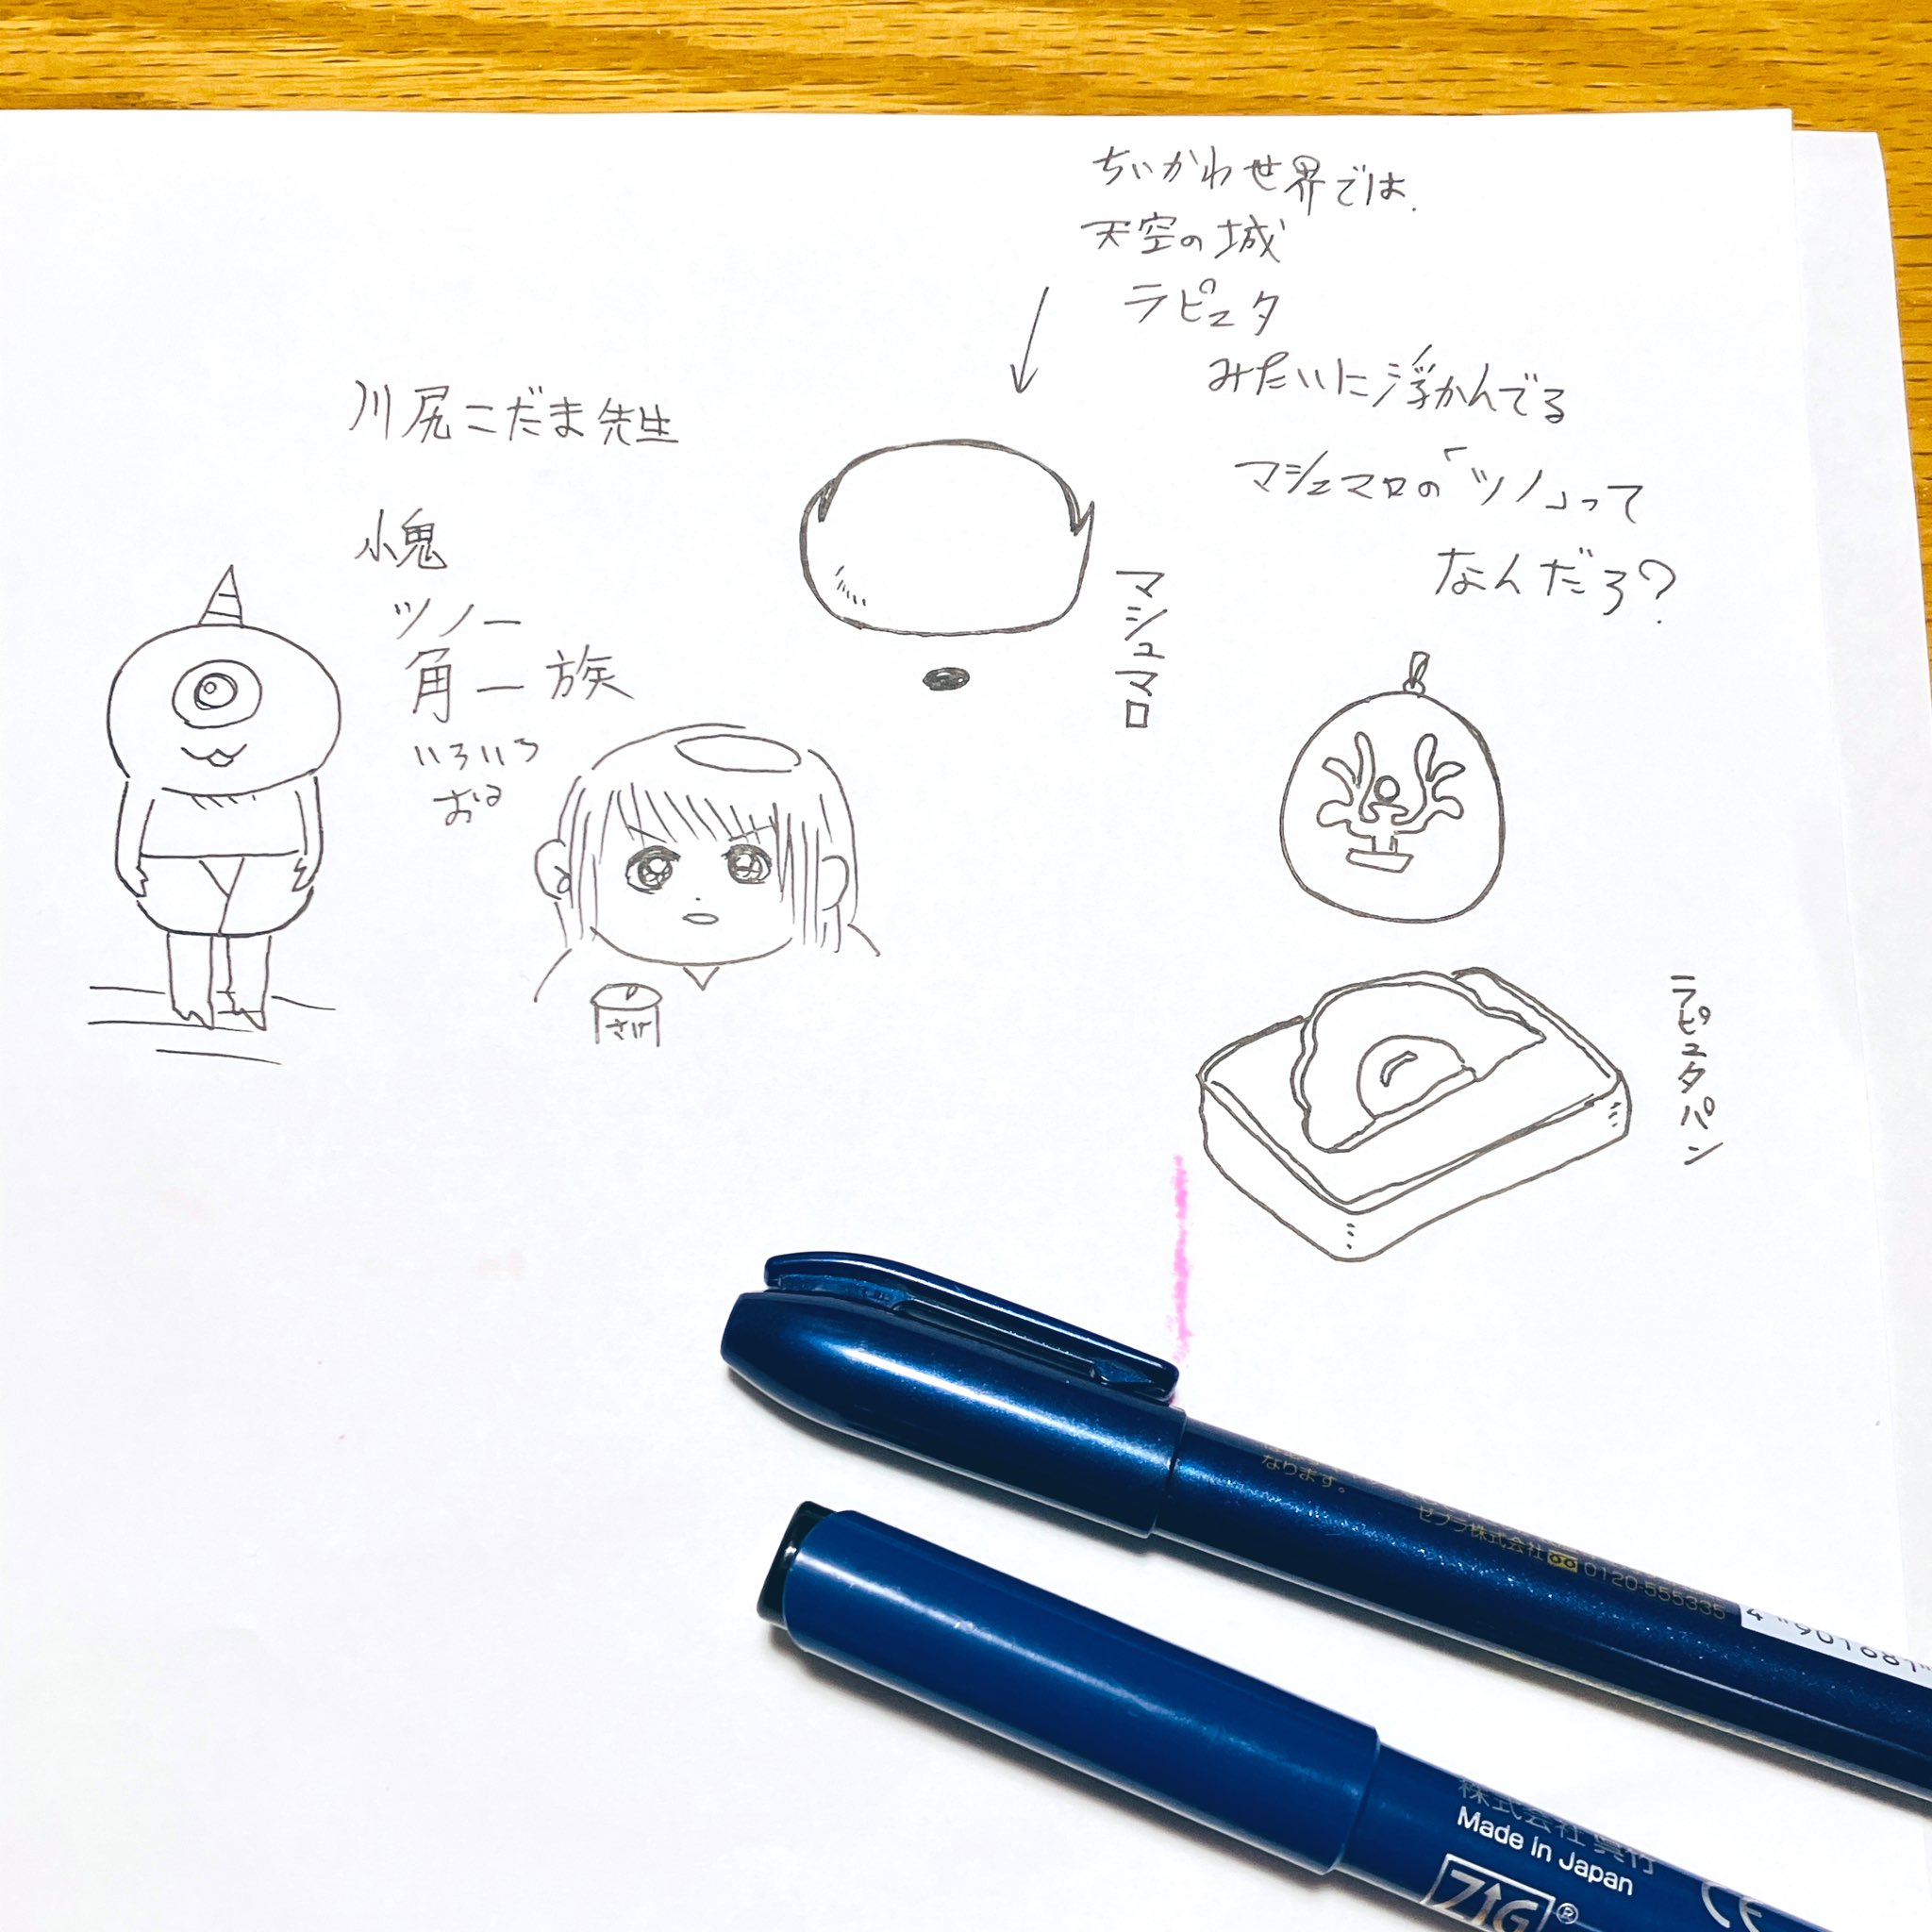 ちいかわ世界では
天空の城
ラピュタ
みたいに浮かんでる
マシュマロの「ツノ」って
なんだろ?
川尻こだま先生
小鬼
ツノー
角一族
いろいろ
おる
マシュマロ
さけ
ラピュタパン
なります。
ゼブラ株式会社 0120-555335
4 "901681"
株式会社呉竹
Made in Japan
ZIG ®
CE